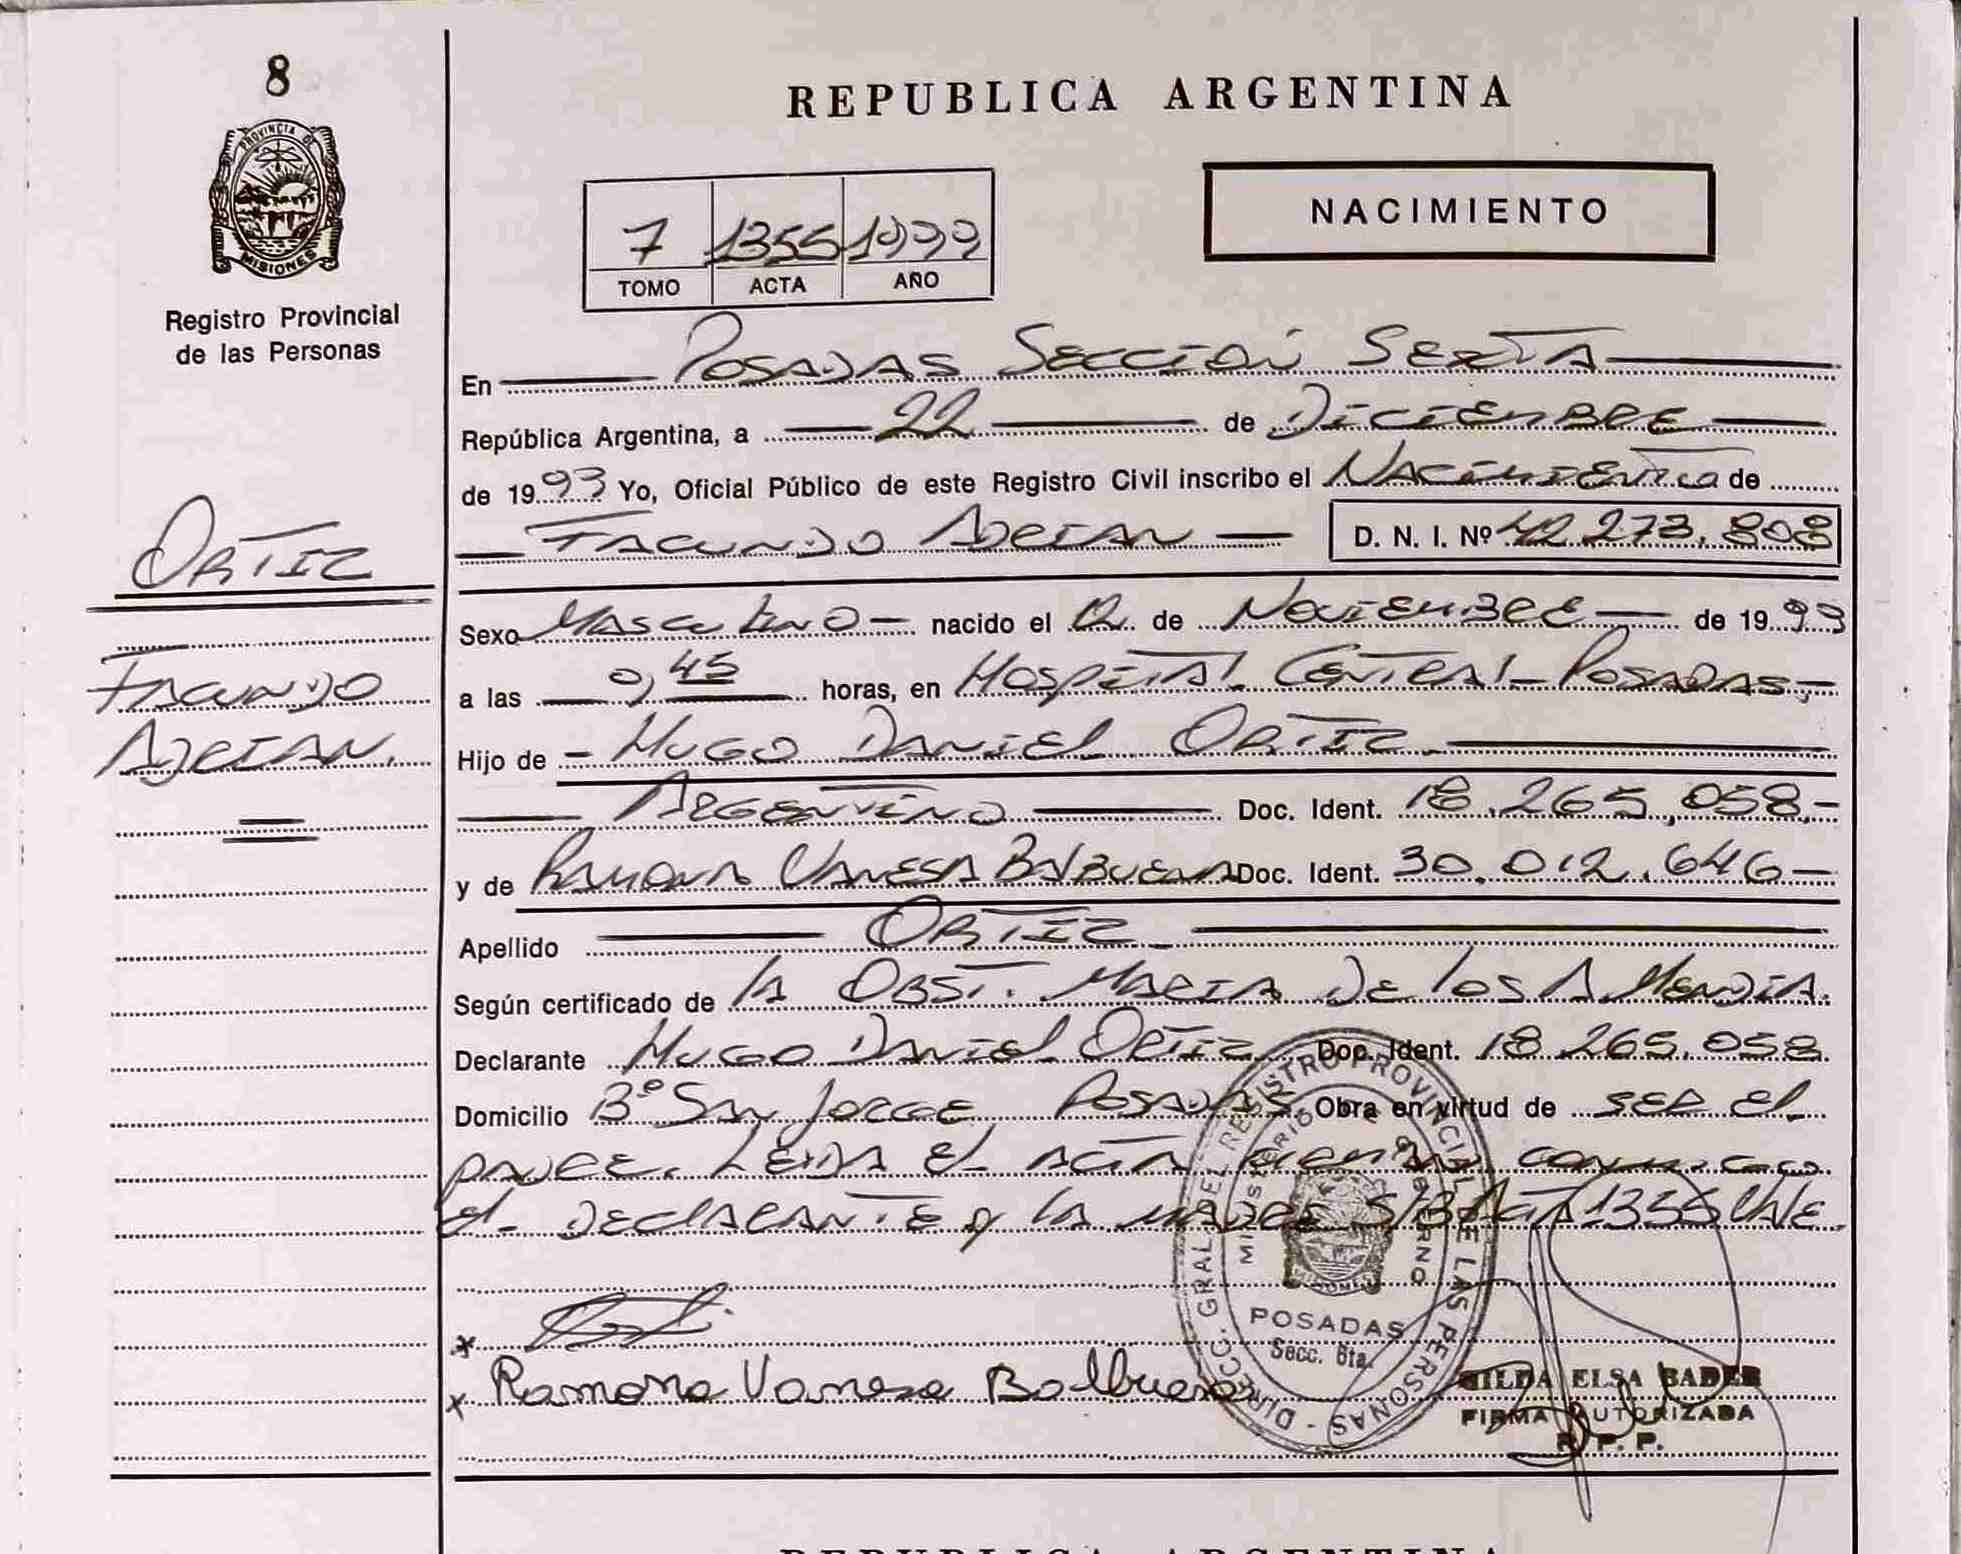 8
PROVINCIA DE
MISIONES
Registro Provincial
de las Personas
REPUBLICA ARGENTINA
NACIMIENTO
7 1355 1999
TOMO ACTA AÑO
En POSADAS SECCION SEXTA
República Argentina, a 22 de DICIEMBRE
de 1993 Yo, Oficial Público de este Registro Civil inscribo el NACIMIENTO de
FACUNDO ADRIAN D. N. I. Nº 42.273.808
ORTIZ
FACUNDO
ADRIAN.
Sexo MASCULINO nacido el 12 de NOVIEMBRE de 1999
a las 9,45 horas, en HOSPITAL CENTRAL POSADAS,
Hijo de HUGO DANIEL ORTIZ
ARGENTINO Doc. Ident. 18.265.058,
y de RAMONA VANESA BALBUENA Doc. Ident. 30.012.646
Apellido ORTIZ
Según certificado de la OBST. MARIA De los A. MENDIA.
Declarante HUGO DANIEL ORTIZ Doc. Ident. 18.265.058
Domicilio Bº SAN JORGE POSADAS. Obra en virtud de SER El
PADRE. LEIDA El ACTA CONMIGO
El DECLARANTE y LA MADRE S/B ACTA 1355 VALE.
x
x Ramona Vanesa Balbuena
DIRECC. GRAL. DEL REGISTRO PROVINCIAL DE LAS PERSONAS
MINISTERIO DE GOBIERNO
POSADAS
Secc. 6ta.
GILDA ELSA BADER
FIRMA AUTORIZADA
R. P. P.
REPUBLICA ARGENTINA